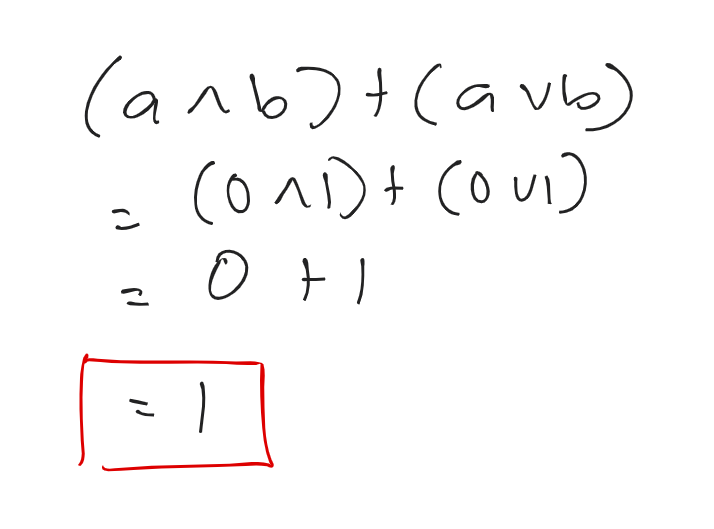 (a ∧ b) + (a ∨ b)
= (0 ∧ 1) + (0 ∨ 1)
= 0 + 1
= 1